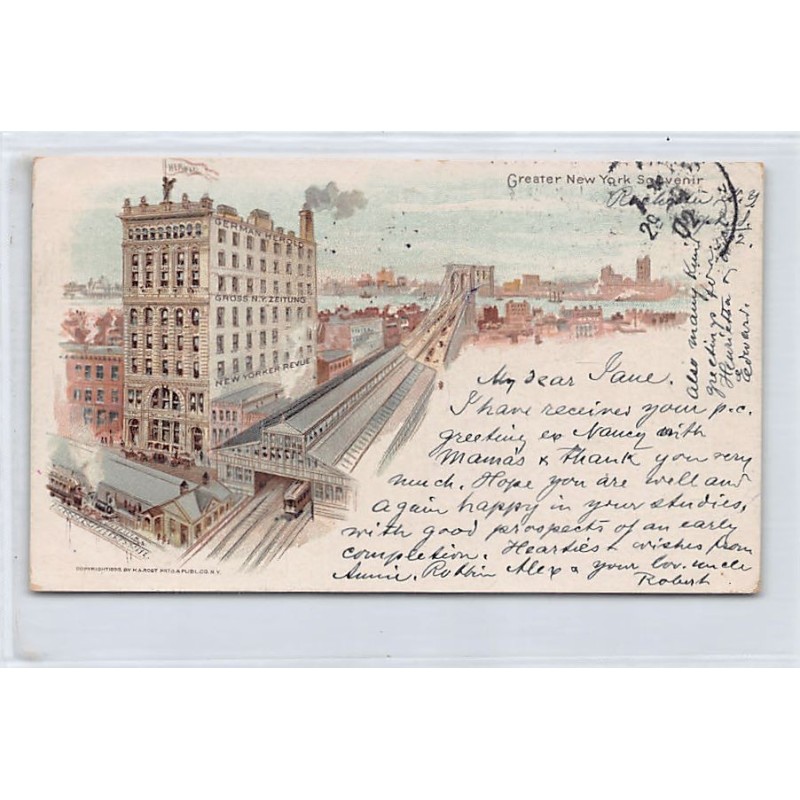 Greater New York Souvenir
HEROLD
GERMAN HEROLD
GROSS N.Y. ZEITUNG
NEW YORKER REVUE
My dear Jane.
I have received your p.c.
greeting ex Nancy with
Mama's & thank you very
much. Hope you are well and
again happy in your studies,
with good prospects of an early
completion. Heartiest wishes from
Annie, Robbin Alex & your lov. uncle
Robert.
also many kind
greetings from
Henrietta &
Edward.
COPYRIGHT 1898 BY H.A. ROST PRTG & PUBL. CO. N.Y.